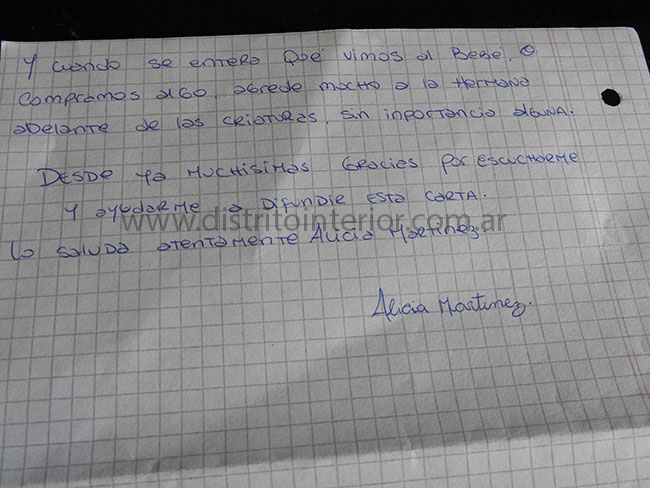 Y cuando se entera Que vimos al Bebe, o
compramos algo, agrede mucho a la Hermana
adelante de las criaturas, sin inportancia alguna.
DESDE ya muchisimas Gracias por escucharme
y ayudarme a Difundir esta carta.
www.distritointerior.com.ar
Lo saluda atentamente Alicia Martinez
Alicia Martinez.